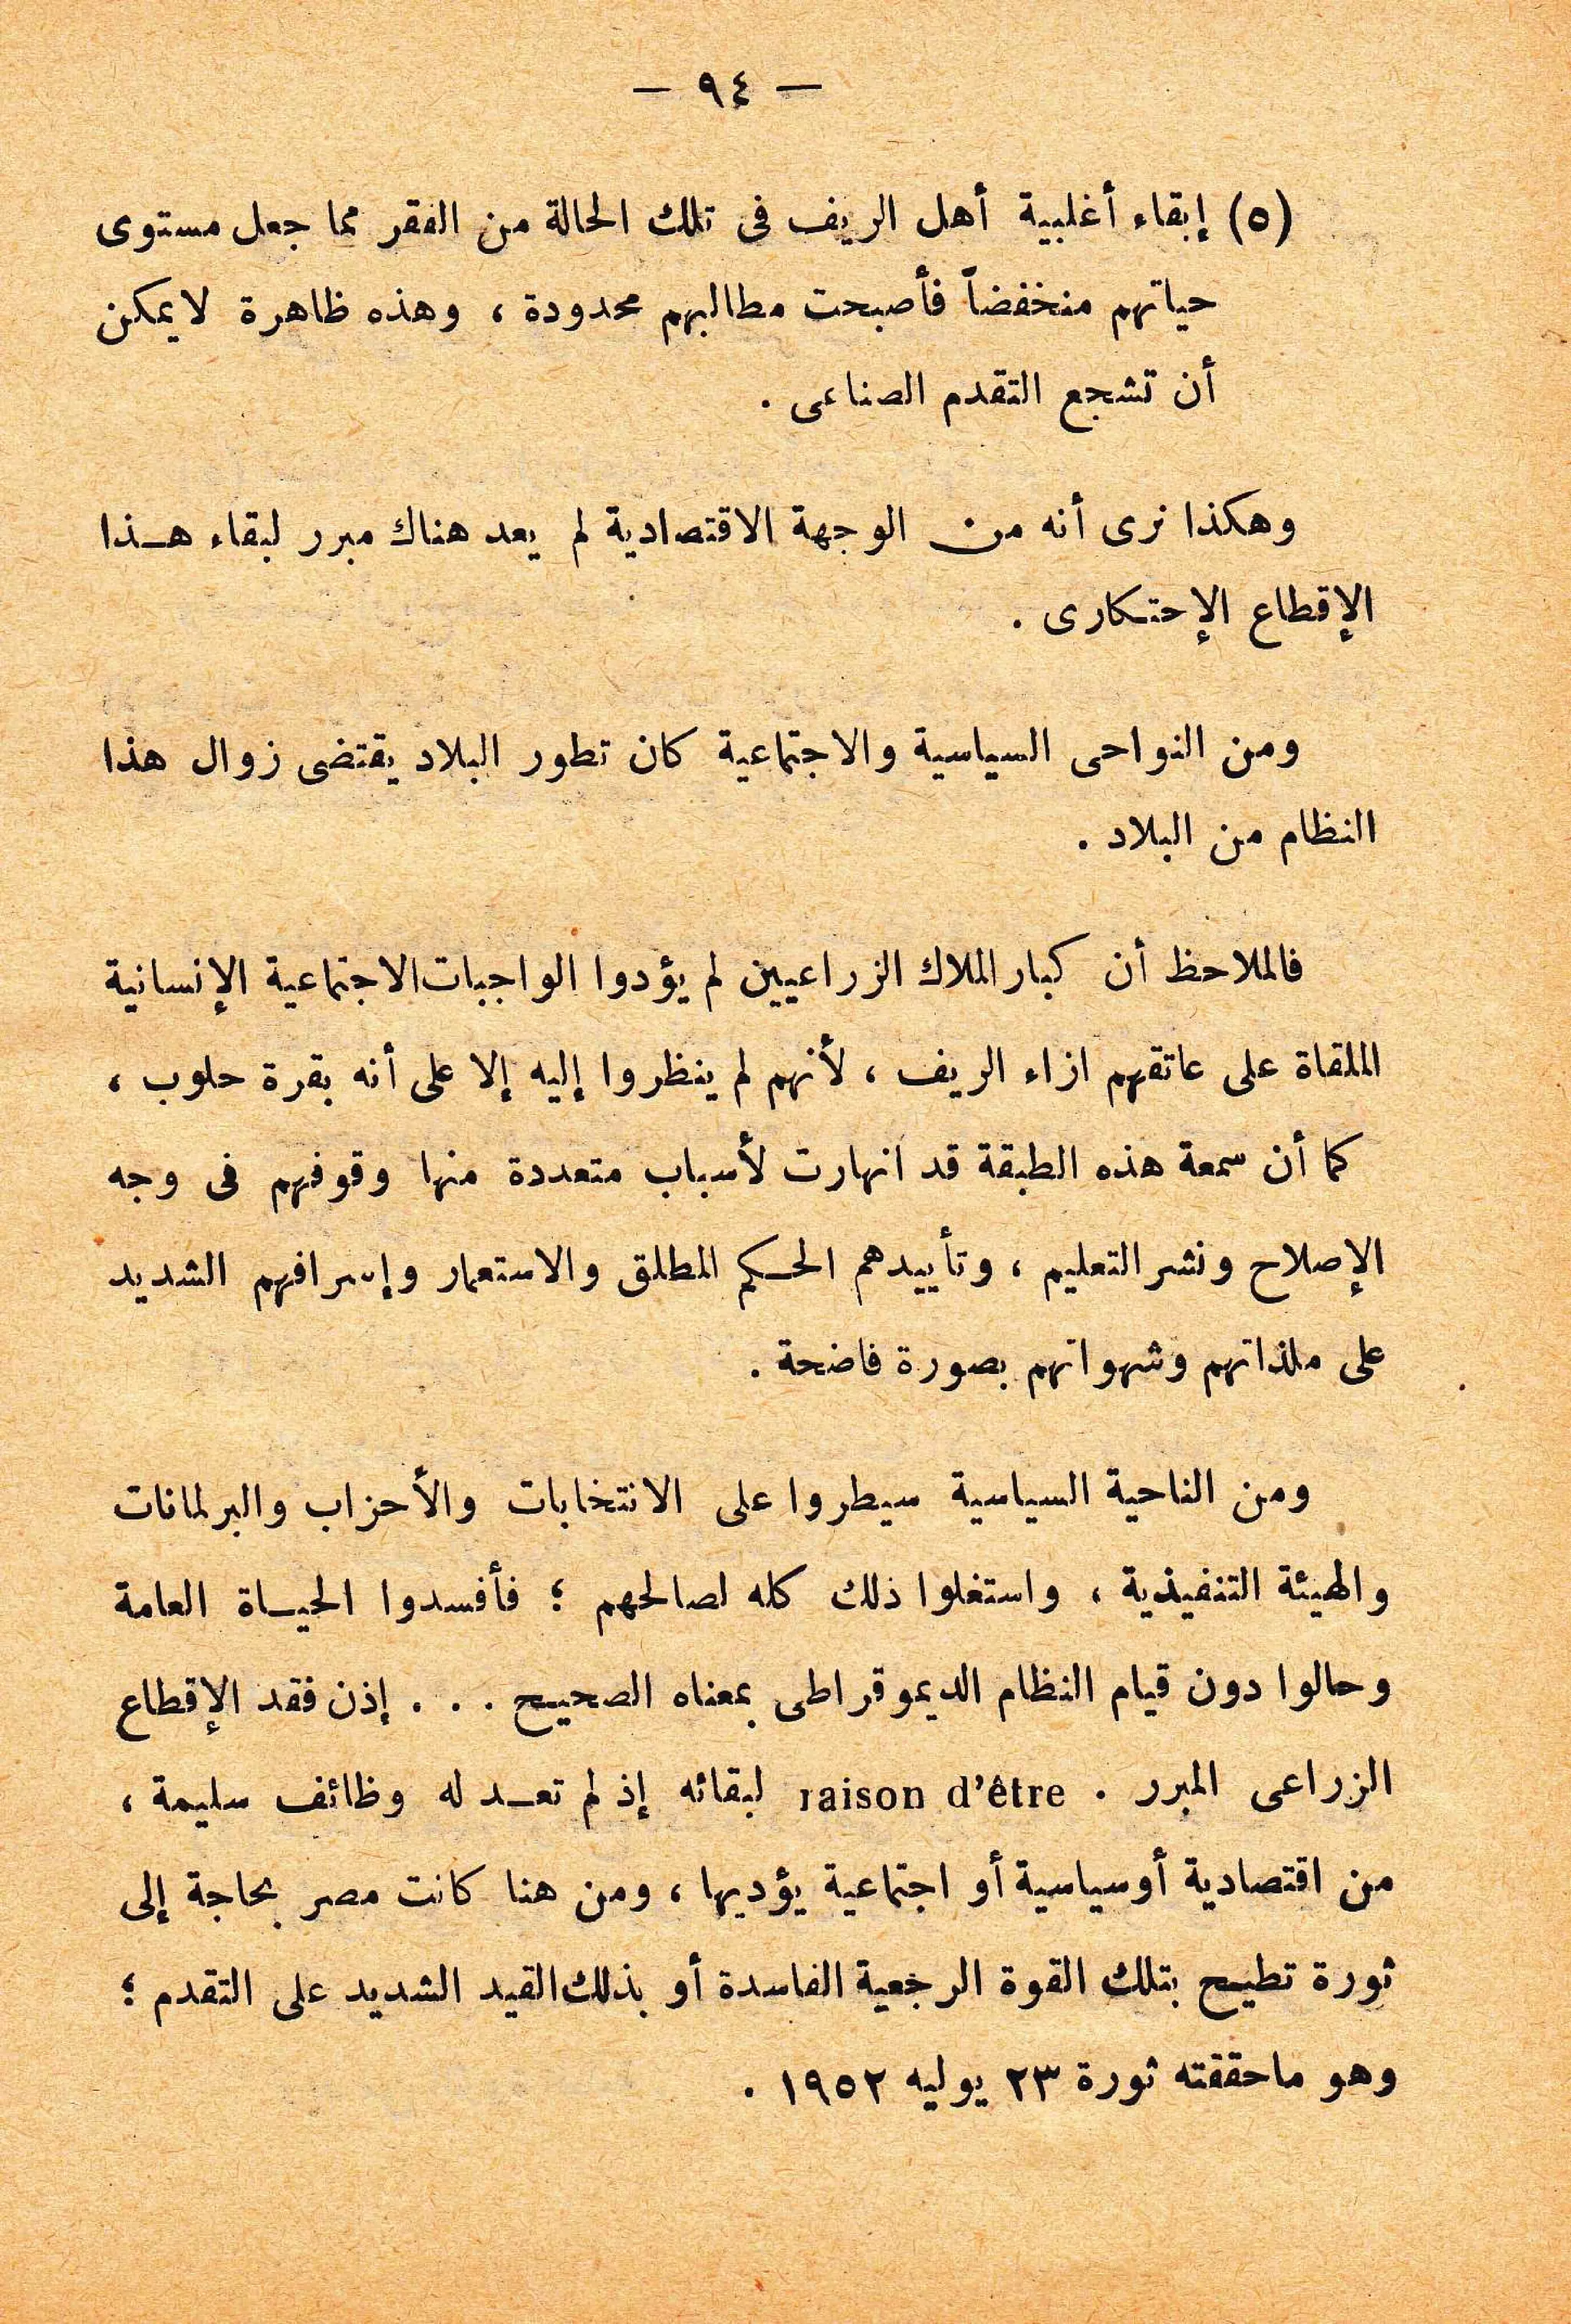 — ٩٤ —
(٥) إبقاء أغلبية أهل الريف فى تلك الحالة من الفقر مما جعل مستوى
حياتهم منخفضاً فأصبحت مطالبهم محدودة ، وهذه ظاهرة لا يمكن
أن تشجع التقدم الصناعى .
وهكذا نرى أنه من الوجهة الاقتصادية لم يعد هناك مبرر لبقاء هـذا
الإقطاع الإحتكارى .
ومن النواحى السياسية والاجتماعية كان تطور البلاد يقتضى زوال هذا
النظام من البلاد .
فالملاحظ أن كبار الملاك الزراعيين لم يؤدوا الواجبات الاجتماعية الإنسانية
الملقاة على عاتقهم ازاء الريف ، لأنهم لم ينظروا إليه إلا على أنه بقرة حلوب ،
كما أن سمعة هذه الطبقة قد انهارت لأسباب متعددة منها وقوفهم فى وجه
الإصلاح ونشر التعليم ، وتأييدهم الحـكم المطلق والاستعمار وإسرافهم الشديد
على ملذاتهم وشهواتهم بصورة فاضحة .
ومن الناحية السياسية سيطروا على الانتخابات والأحزاب والبرلمانات
والهيئة التنفيذية ، واستغلوا ذلك كله لصالحهم ؛ فأفسدوا الحيـاة العامة
وحالوا دون قيام النظام الديموقراطى بمعناه الصحيح . . . إذن فقد الإقطاع
الزراعى المبرر . raison d’être لبقائه إذ لم تعـد له وظائف سليمة ،
من اقتصادية أو سياسية أو اجتماعية يؤديها ، ومن هنا كانت مصر بحاجة إلى
ثورة تطيح بتلك القوة الرجعية الفاسدة أو بذلك القيد الشديد على التقدم ؛
وهو ما حققته ثورة ٢٣ يوليه ١٩٥٢ .